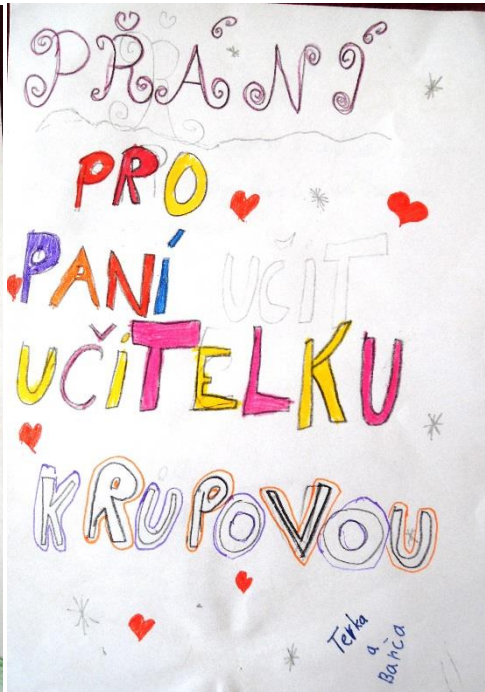 PŘÁNÍ
PRO
PANÍ UČIT
UČITELKU
KRUPOVOU
Terka
a
Baňča